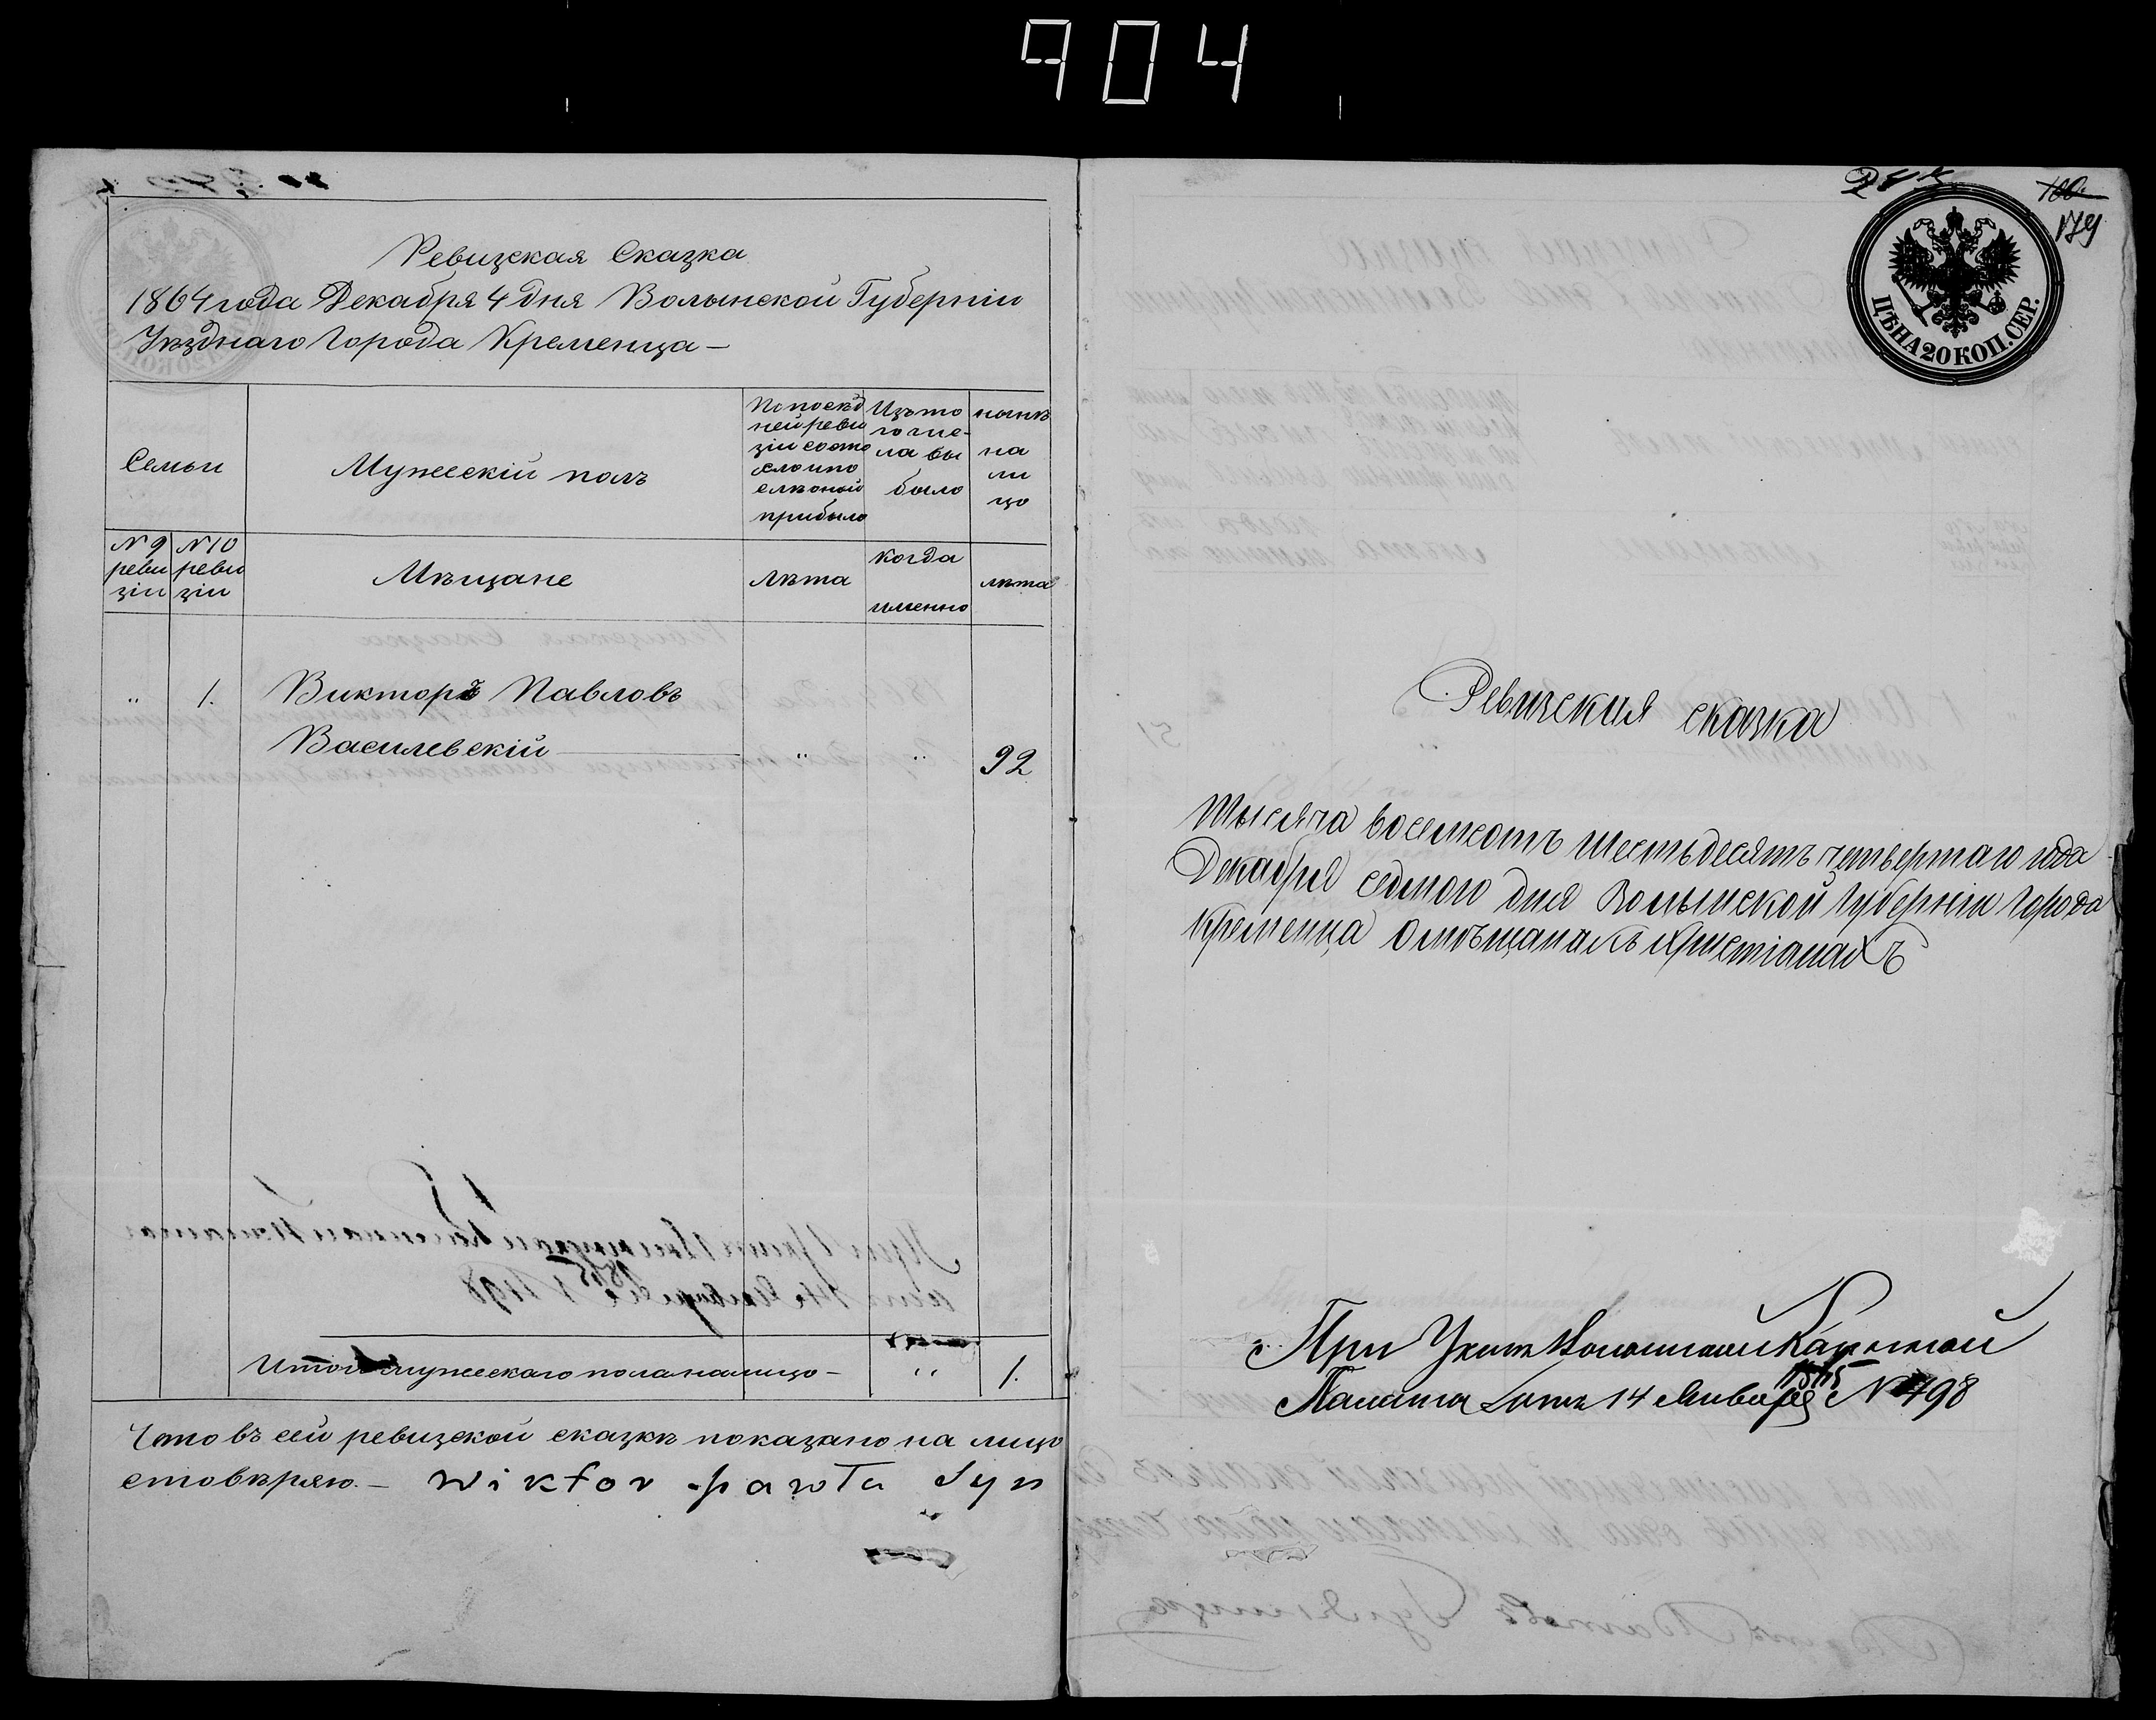 904
Ревизская Сказка
1864 года Декабря 4 дня Волынской Губерніи
Уѣзднаго Города Кременца —
Семьи
Мужескій полъ
По послѣд
ней реви
зіи состо
яло и по
слѣ оной
прибыло
Изъ то
го чис-
ла вы
было
нынѣ
на
ли
цо
N 9
реви
зіи
N 10
реви
зіи
Мѣщане
лѣта
когда
именно
лѣта
" 1. Викторъ Павловъ
Василевскій — " " 92
Итого мужескаго пола на лицо — " 1.
Что въ сей ревизской сказкѣ показано на лицо
стовѣряю. — Wiktor pawla Syn
100.
179
ЦѢНА 20 КОП. СЕР.
Ревизская сказка
Тысяча восемсотъ шестьдесятъ четвертаго года
Декабря седмого дня Волынской Губерніи Города
Кременца о мѣщанахъ христіанахъ
При Указѣ Волынской Казенной
Палаты отъ 14 Января 1865 N 498